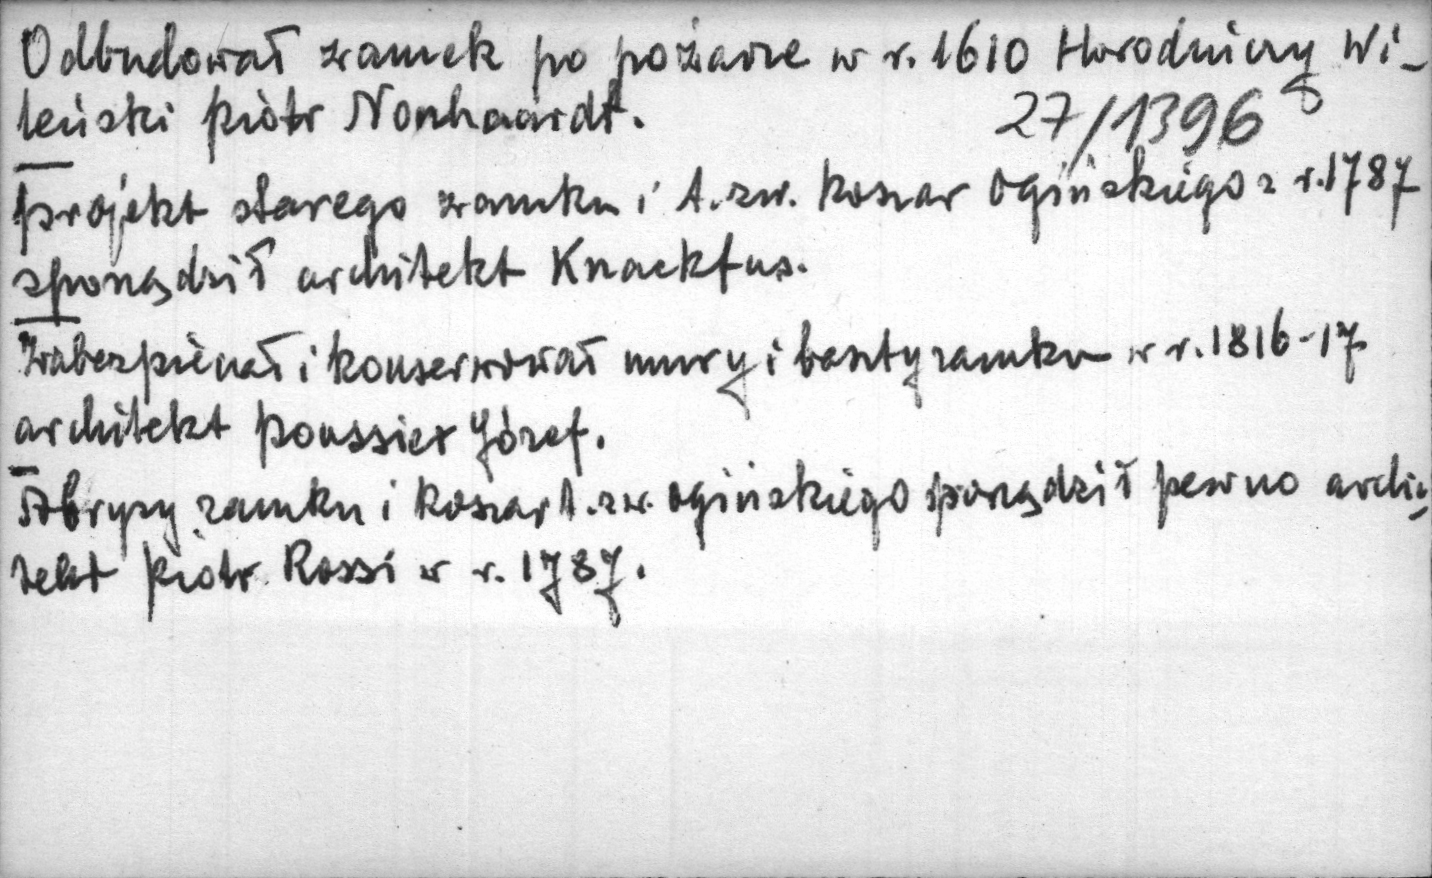 Odbudował zamek po pożarze w r. 1610 Horodniczy Wi-
leński Piotr Nonhaardt.
27/1396
Projekt starego zamku i t.zw. koszar Ogińskiego z r. 1787
sporządził architekt Knackfus.
Zabezpieczał i konserwował mury i baszty zamku w r. 1816-17
architekt Poussier Józef.
Abrysy zamku i koszar t.zw. Ogińskiego sporządził pewno archi-
tekt Piotr Rossi w r. 1787.